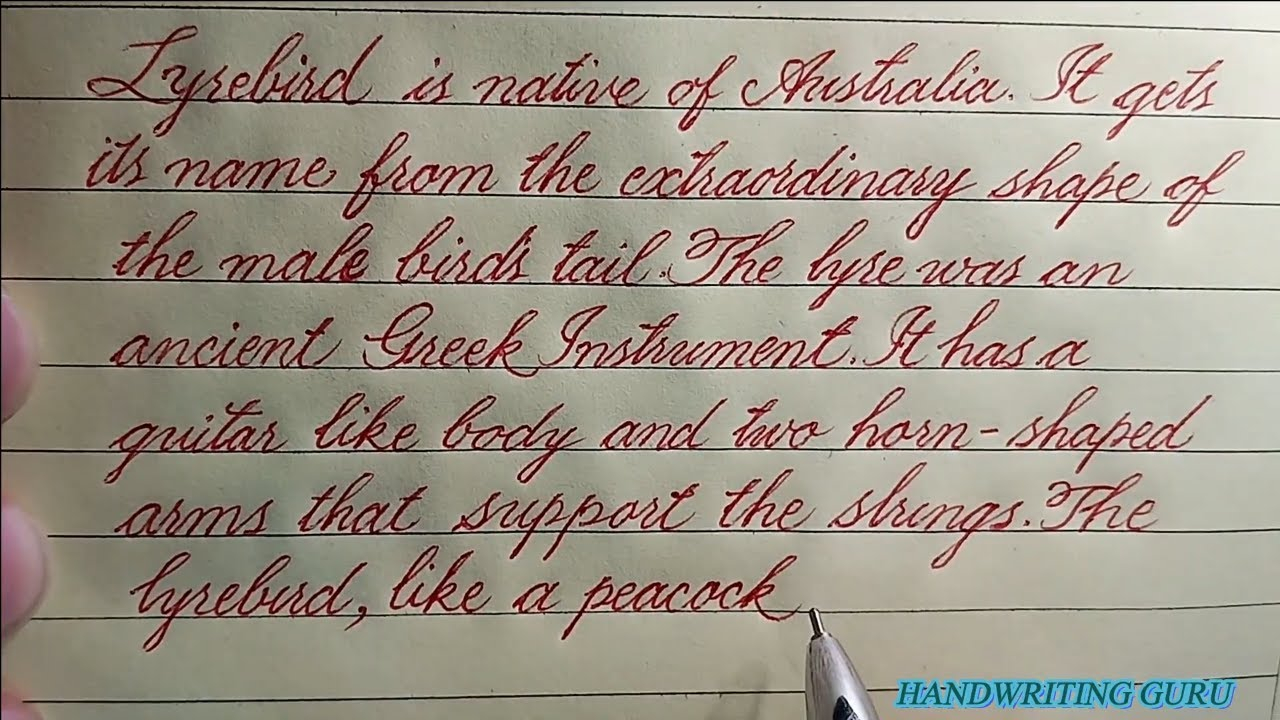 Lyrebird is native of Australia. It gets
its name from the extraordinary shape of
the male bird's tail. The lyre was an
ancient Greek Instrument. It has a
guitar like body and two horn-shaped
arms that support the strings. The
lyrebird, like a peacock
HANDWRITING GURU